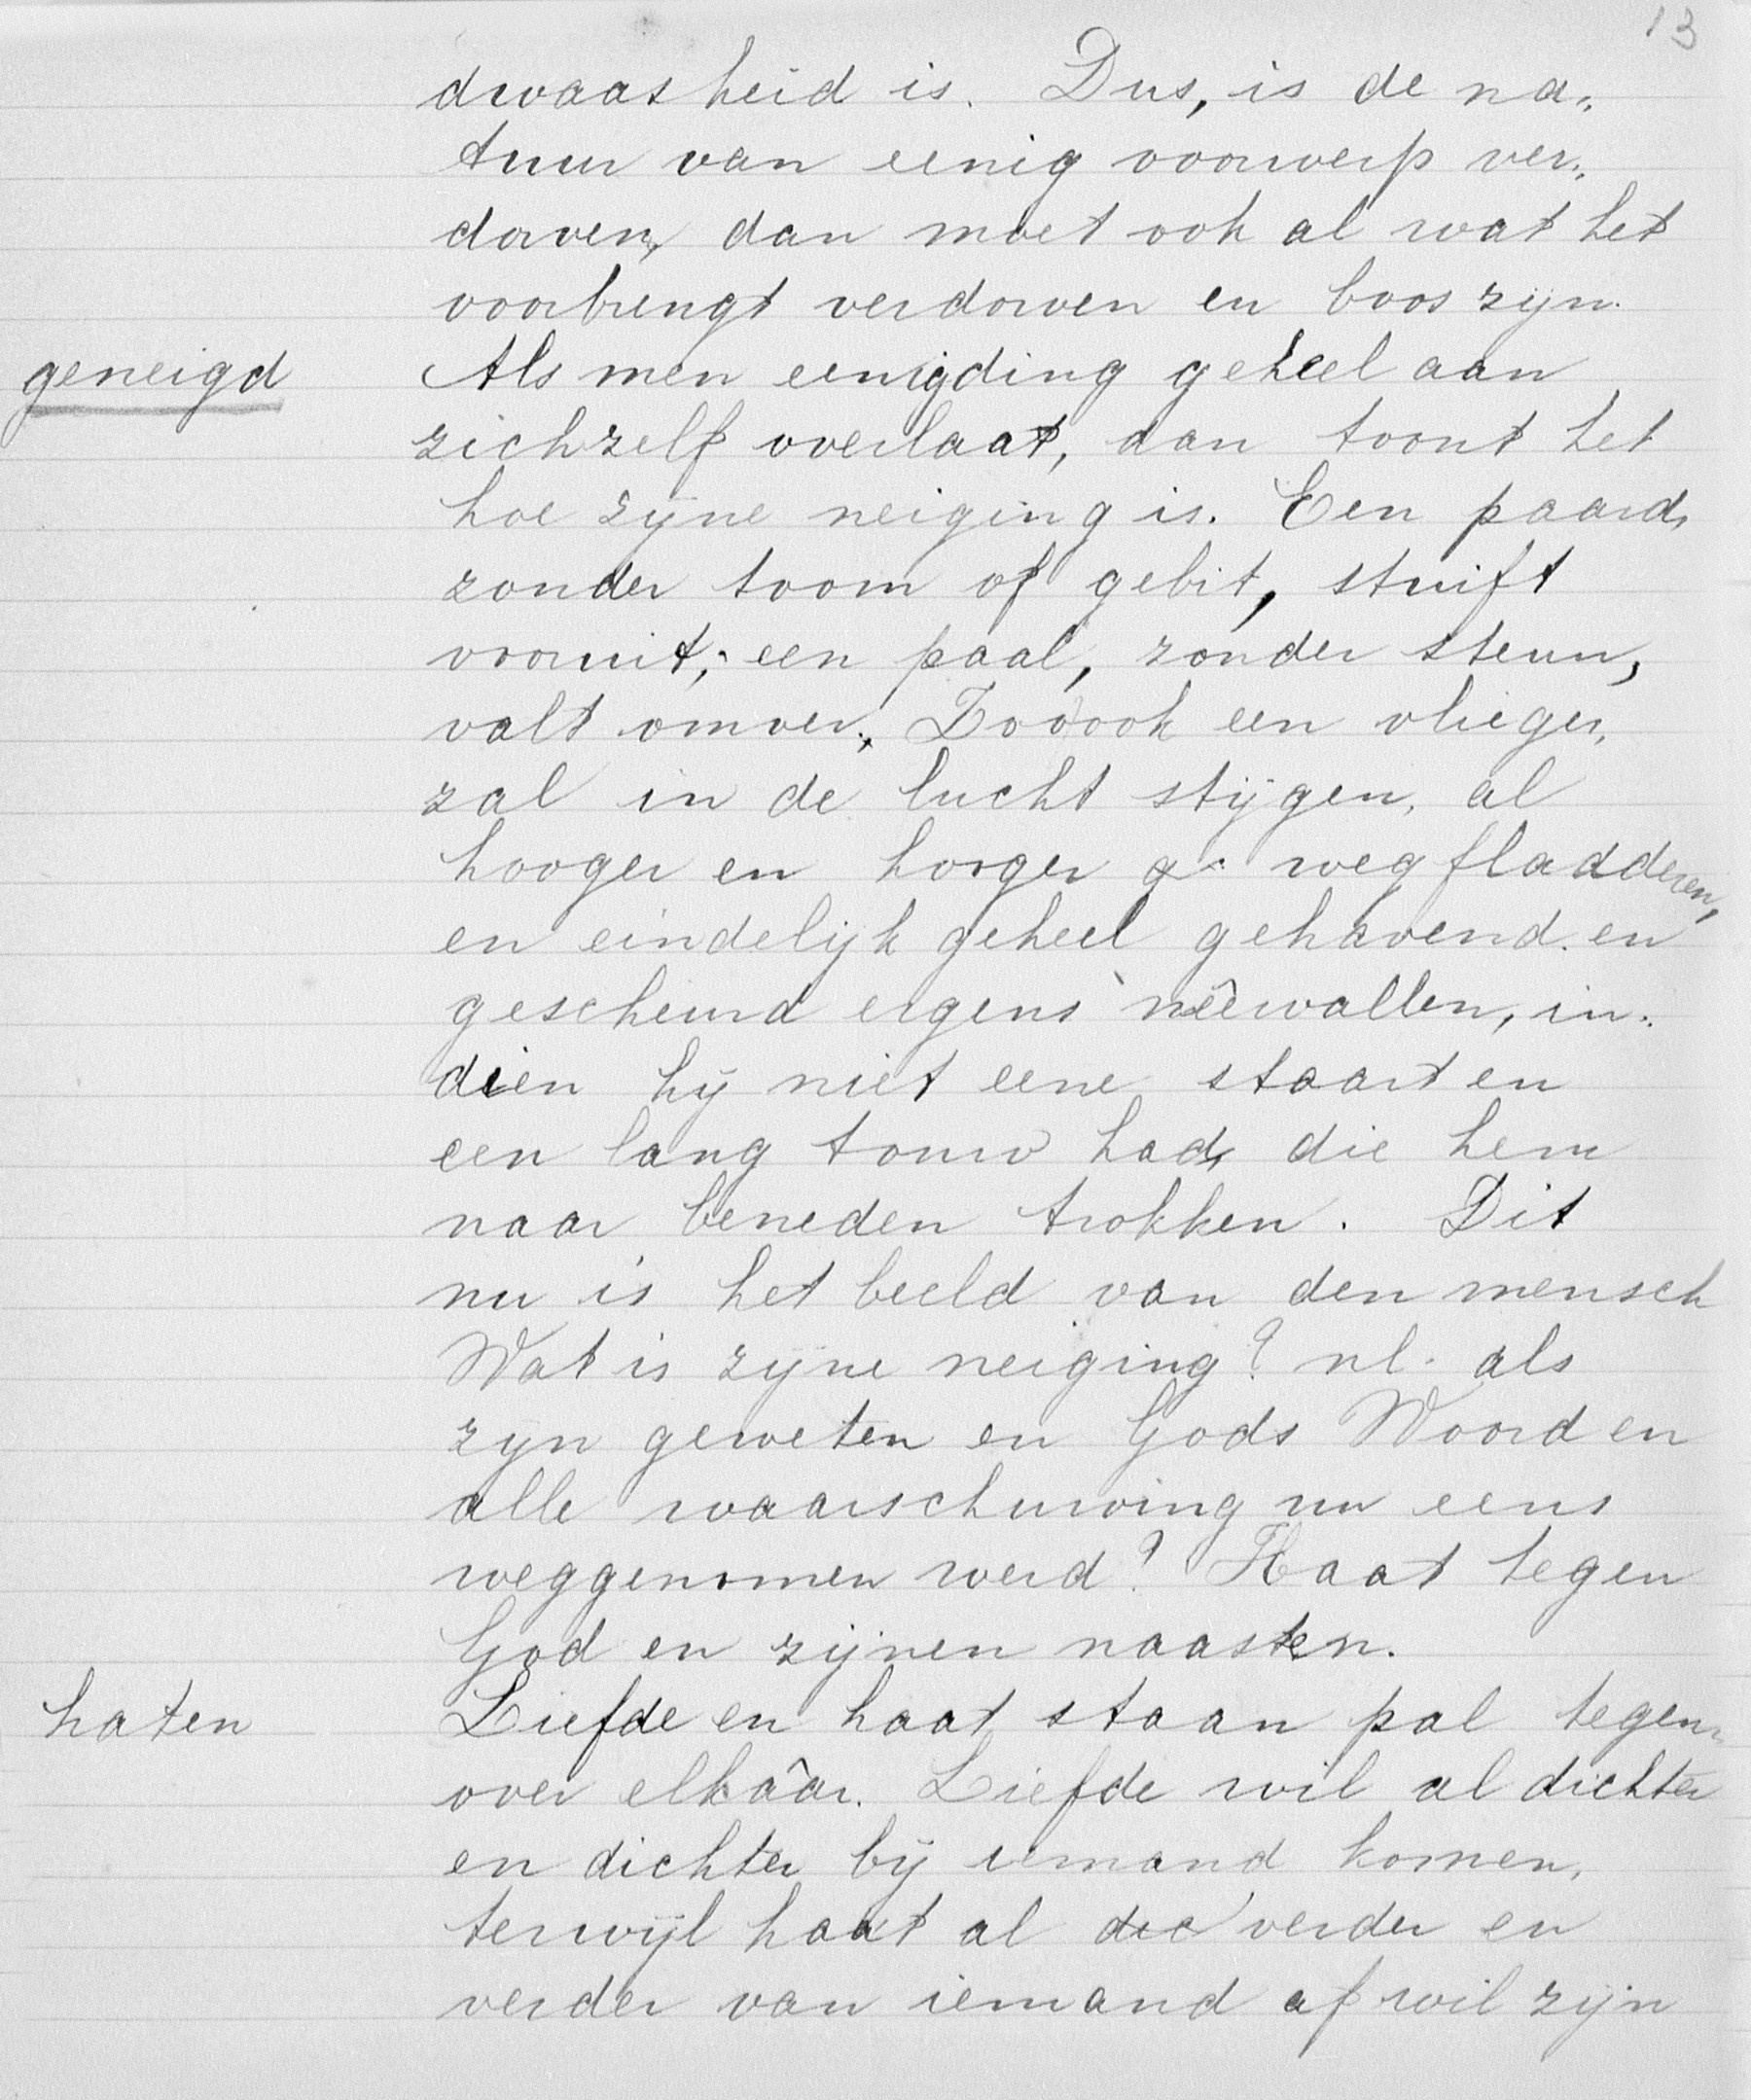 13
dwaasheid is. Dus, is de na„
tuur van eenig voorwerp ver„
dorven, dan moet ook al wat het
voorbrengt verdorven en boos zijn.
geneigd Als men eenigding geheel aan
zichzelf overlaat, dan toont het
hoe zijne neiging is. Een paard,
zonder toom of gebit, stuift
vooruit; een paal, zonder steun,
valt omver. Zooook een vlieger,
zal in de lucht stijgen, al
hooger en hooger wegfladderen,
en eindelijk geheel gehavend en
gescheurd ergens nêervallen, in„
dien hij niet eene staart en
een lang touw had, die hem
naar beneden trokken. Dit
nu is het beeld van den mensch
Wat is zijne neiging? nl. als
zijn geweten en Gods Woord en
alle waarschuwing nu eens
weggenomen werd? Haat tegen
God en zijnen naasten.
haten Liefde en haat staan pal tegen„
over elkâar. Liefde wil al dichter
en dichter bij iemand komen,
terwijl haat al verder en
verder van iemand af wil zijn